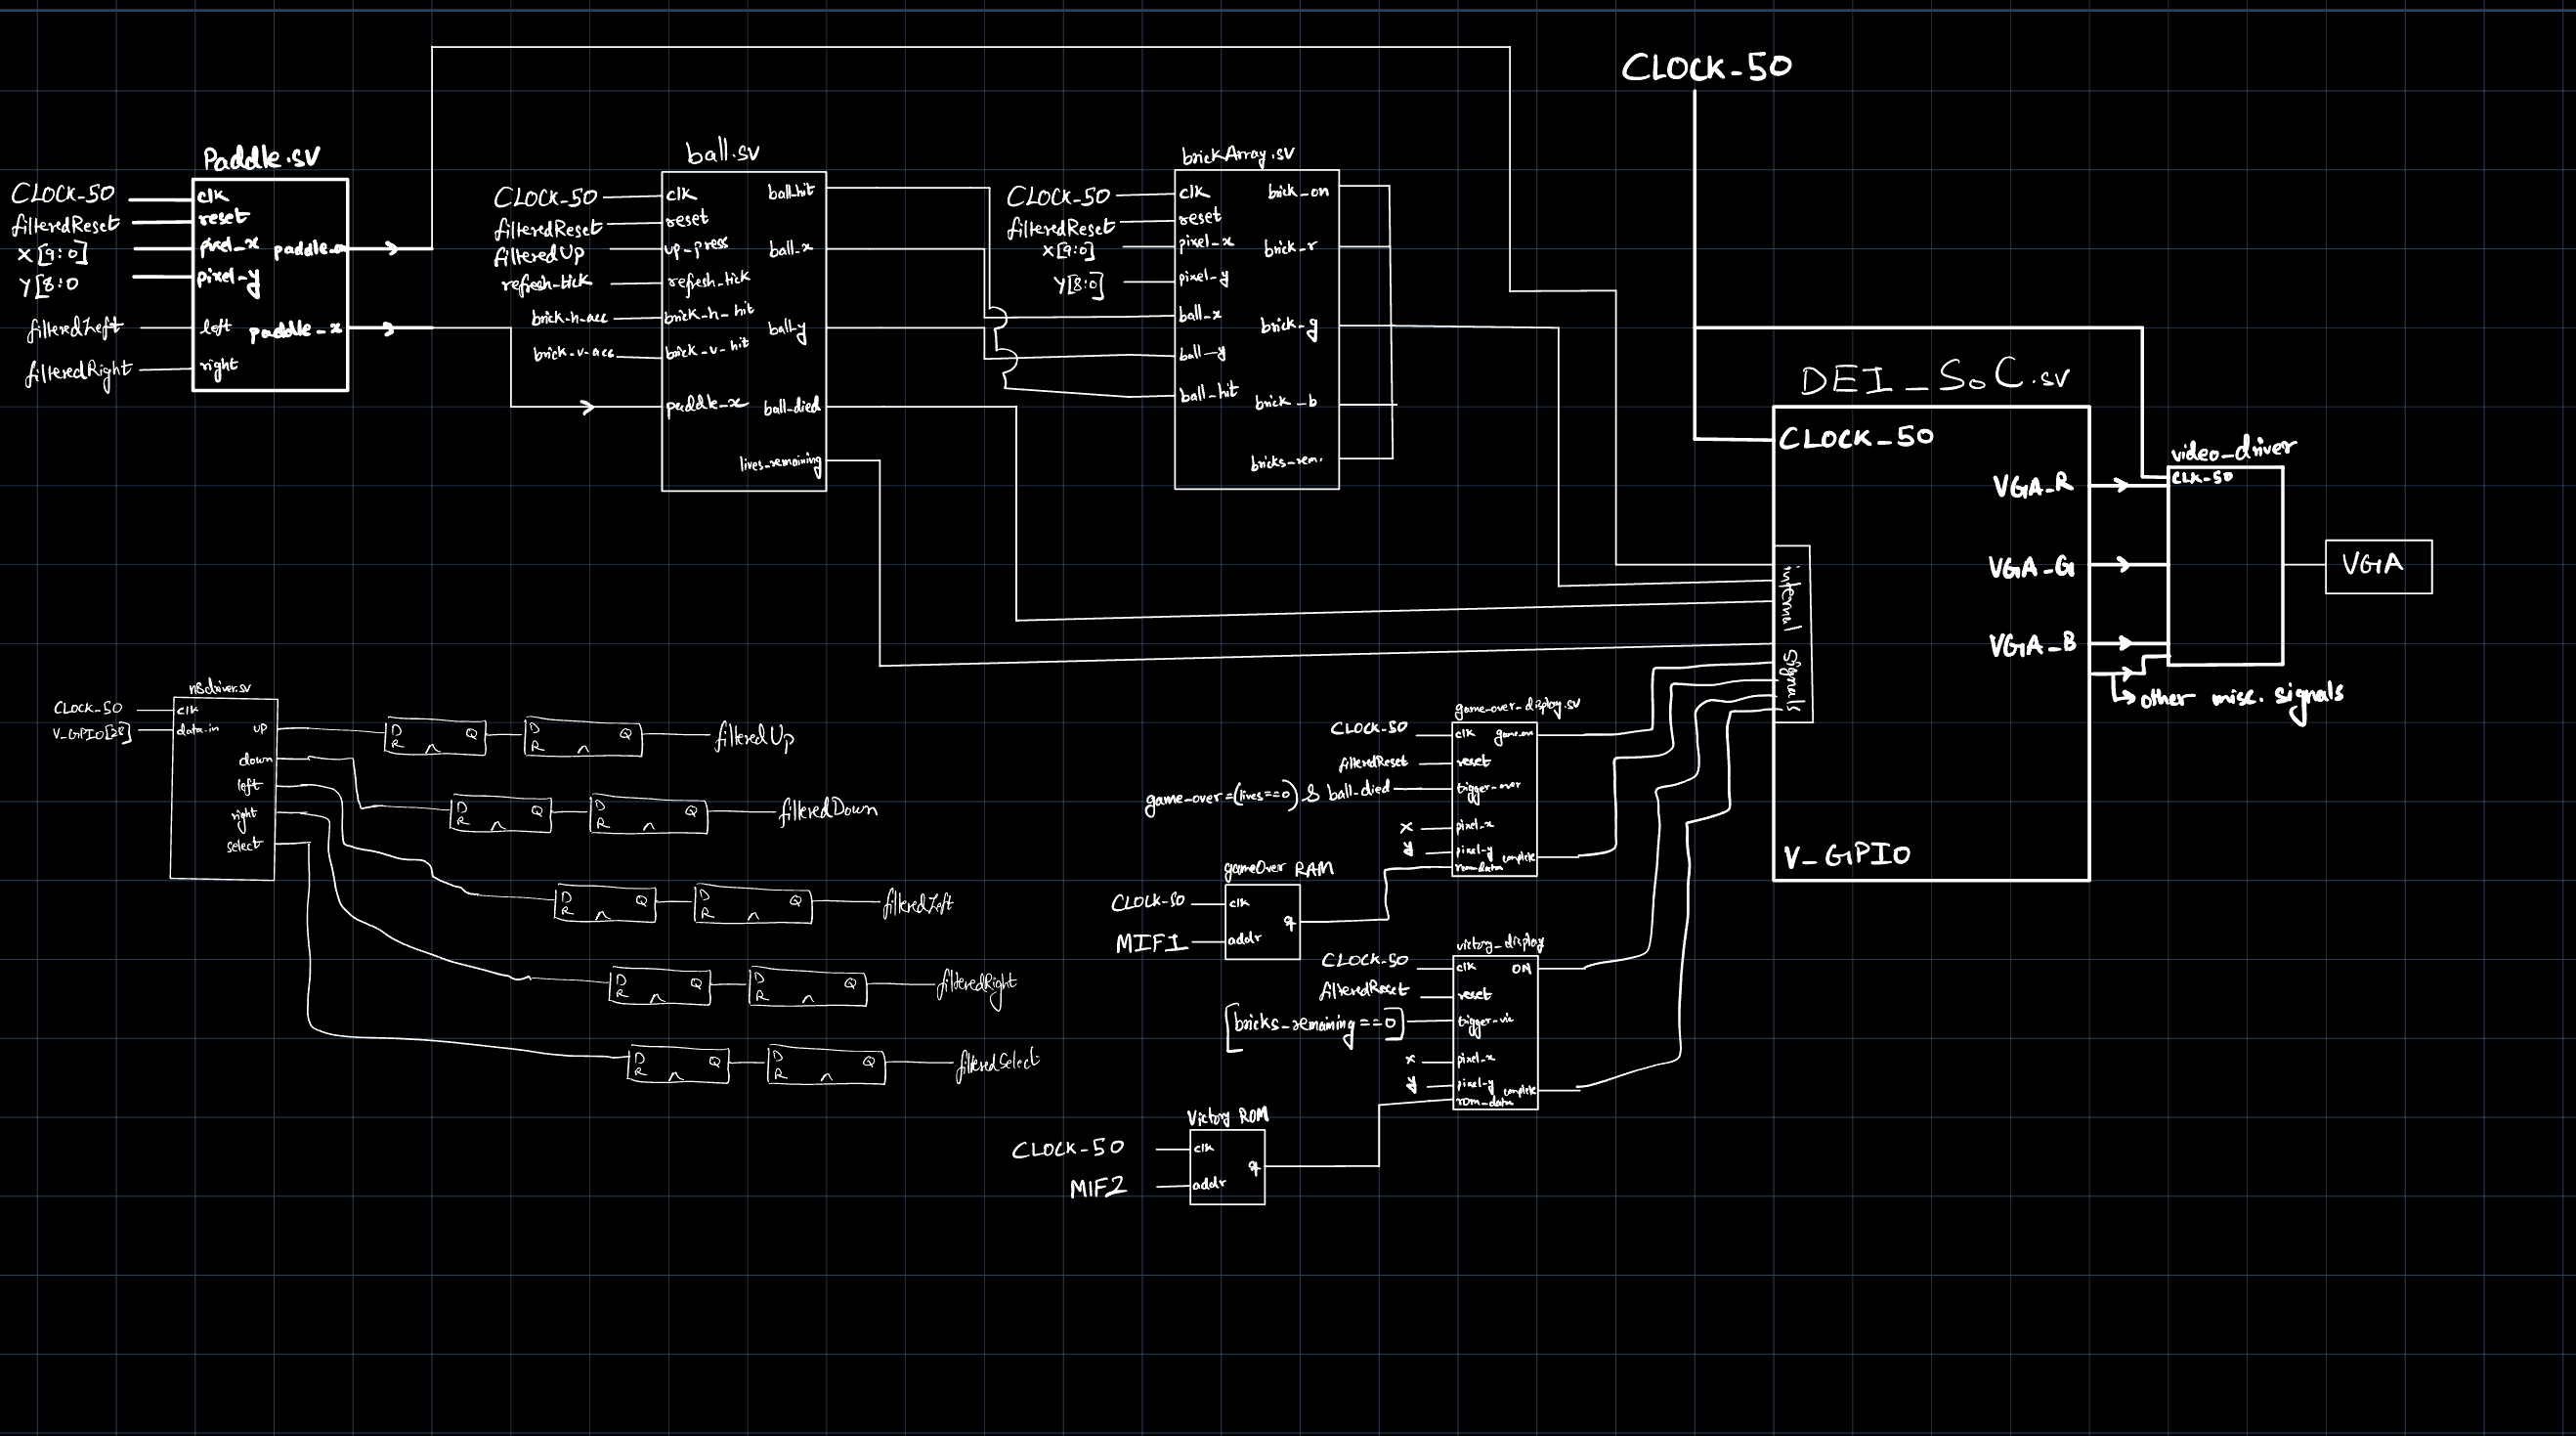 CLOCK-50
Paddle.sv
CLOCK-50
filteredReset
X[9:0]
Y[8:0
filteredLeft
filteredRight
clk
reset
pixel-x
pixel-y
left
right
paddle_x
ball.sv
CLOCK-50
filteredReset
filteredUp
refresh-tick
brick-h-acc
brick-v-acc
clk
reset
up-press
refresh_tick
brick-h-hit
brick-v-hit
paddle-x
ball_hit
ball-x
ball-y
ball-died
lives-remaining
brickArray.sv
CLOCK-50
filteredReset
X[9:0]
Y[8:0]
clk
reset
pixel-x
pixel-y
ball-x
ball-y
ball-hit
brick-on
brick-r
brick-g
brick-b
bricks-rem.
DE1_SoC.sv
CLOCK-50
internal signals
V-GPIO
VGA-R
VGA-G
VGA-B
video-driver
CLK-50
VGA
other misc. signals
n8driver.sv
CLOCK-50
V-GPIO[28]
clk
data-in
up
down
left
right
select
D Q
R
D Q
R
filteredUp
D Q
R
D Q
R
filteredDown
D Q
R
D Q
R
filteredLeft
D Q
R
D Q
R
filteredRight
D Q
R
D Q
R
filteredSelect
game-over-display.sv
CLOCK-50
filteredReset
game-over=(lives==0) & ball-died
x
y
clk
reset
trigger-over
pixel-x
pixel-y
rom-data
complete
gameOver RAM
CLOCK-50
MIF1
clk
addr
q
victory_display
CLOCK-50
filteredReset
[bricks_remaining==0]
x
y
clk
reset
trigger-vic
pixel-x
pixel-y
rom_data
ON
complete
Victory ROM
CLOCK-50
MIF2
clk
addr
q